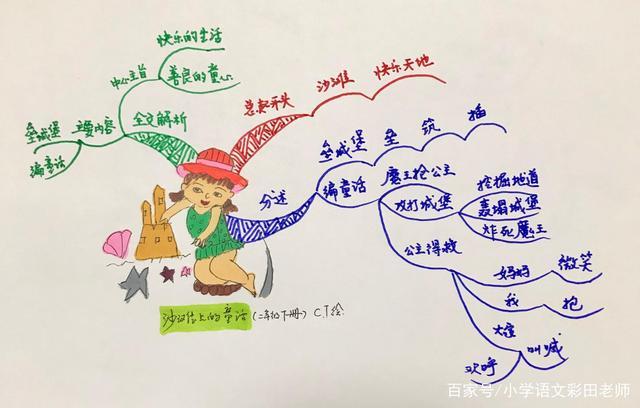 快乐的生活
中心主旨
善良的童心
全文解析
主要内容
垒城堡
编童话
总起开头
沙滩
快乐天地
分述
垒城堡
垒
筑
插
编童话
魔王抢公主
攻打城堡
挖掘地道
轰塌城堡
炸死魔王
公主得救
妈妈
微笑
我
抱
大家
欢呼
叫喊
沙滩上的童话(二年级下册) C.T绘
百家号/小学语文彩田老师